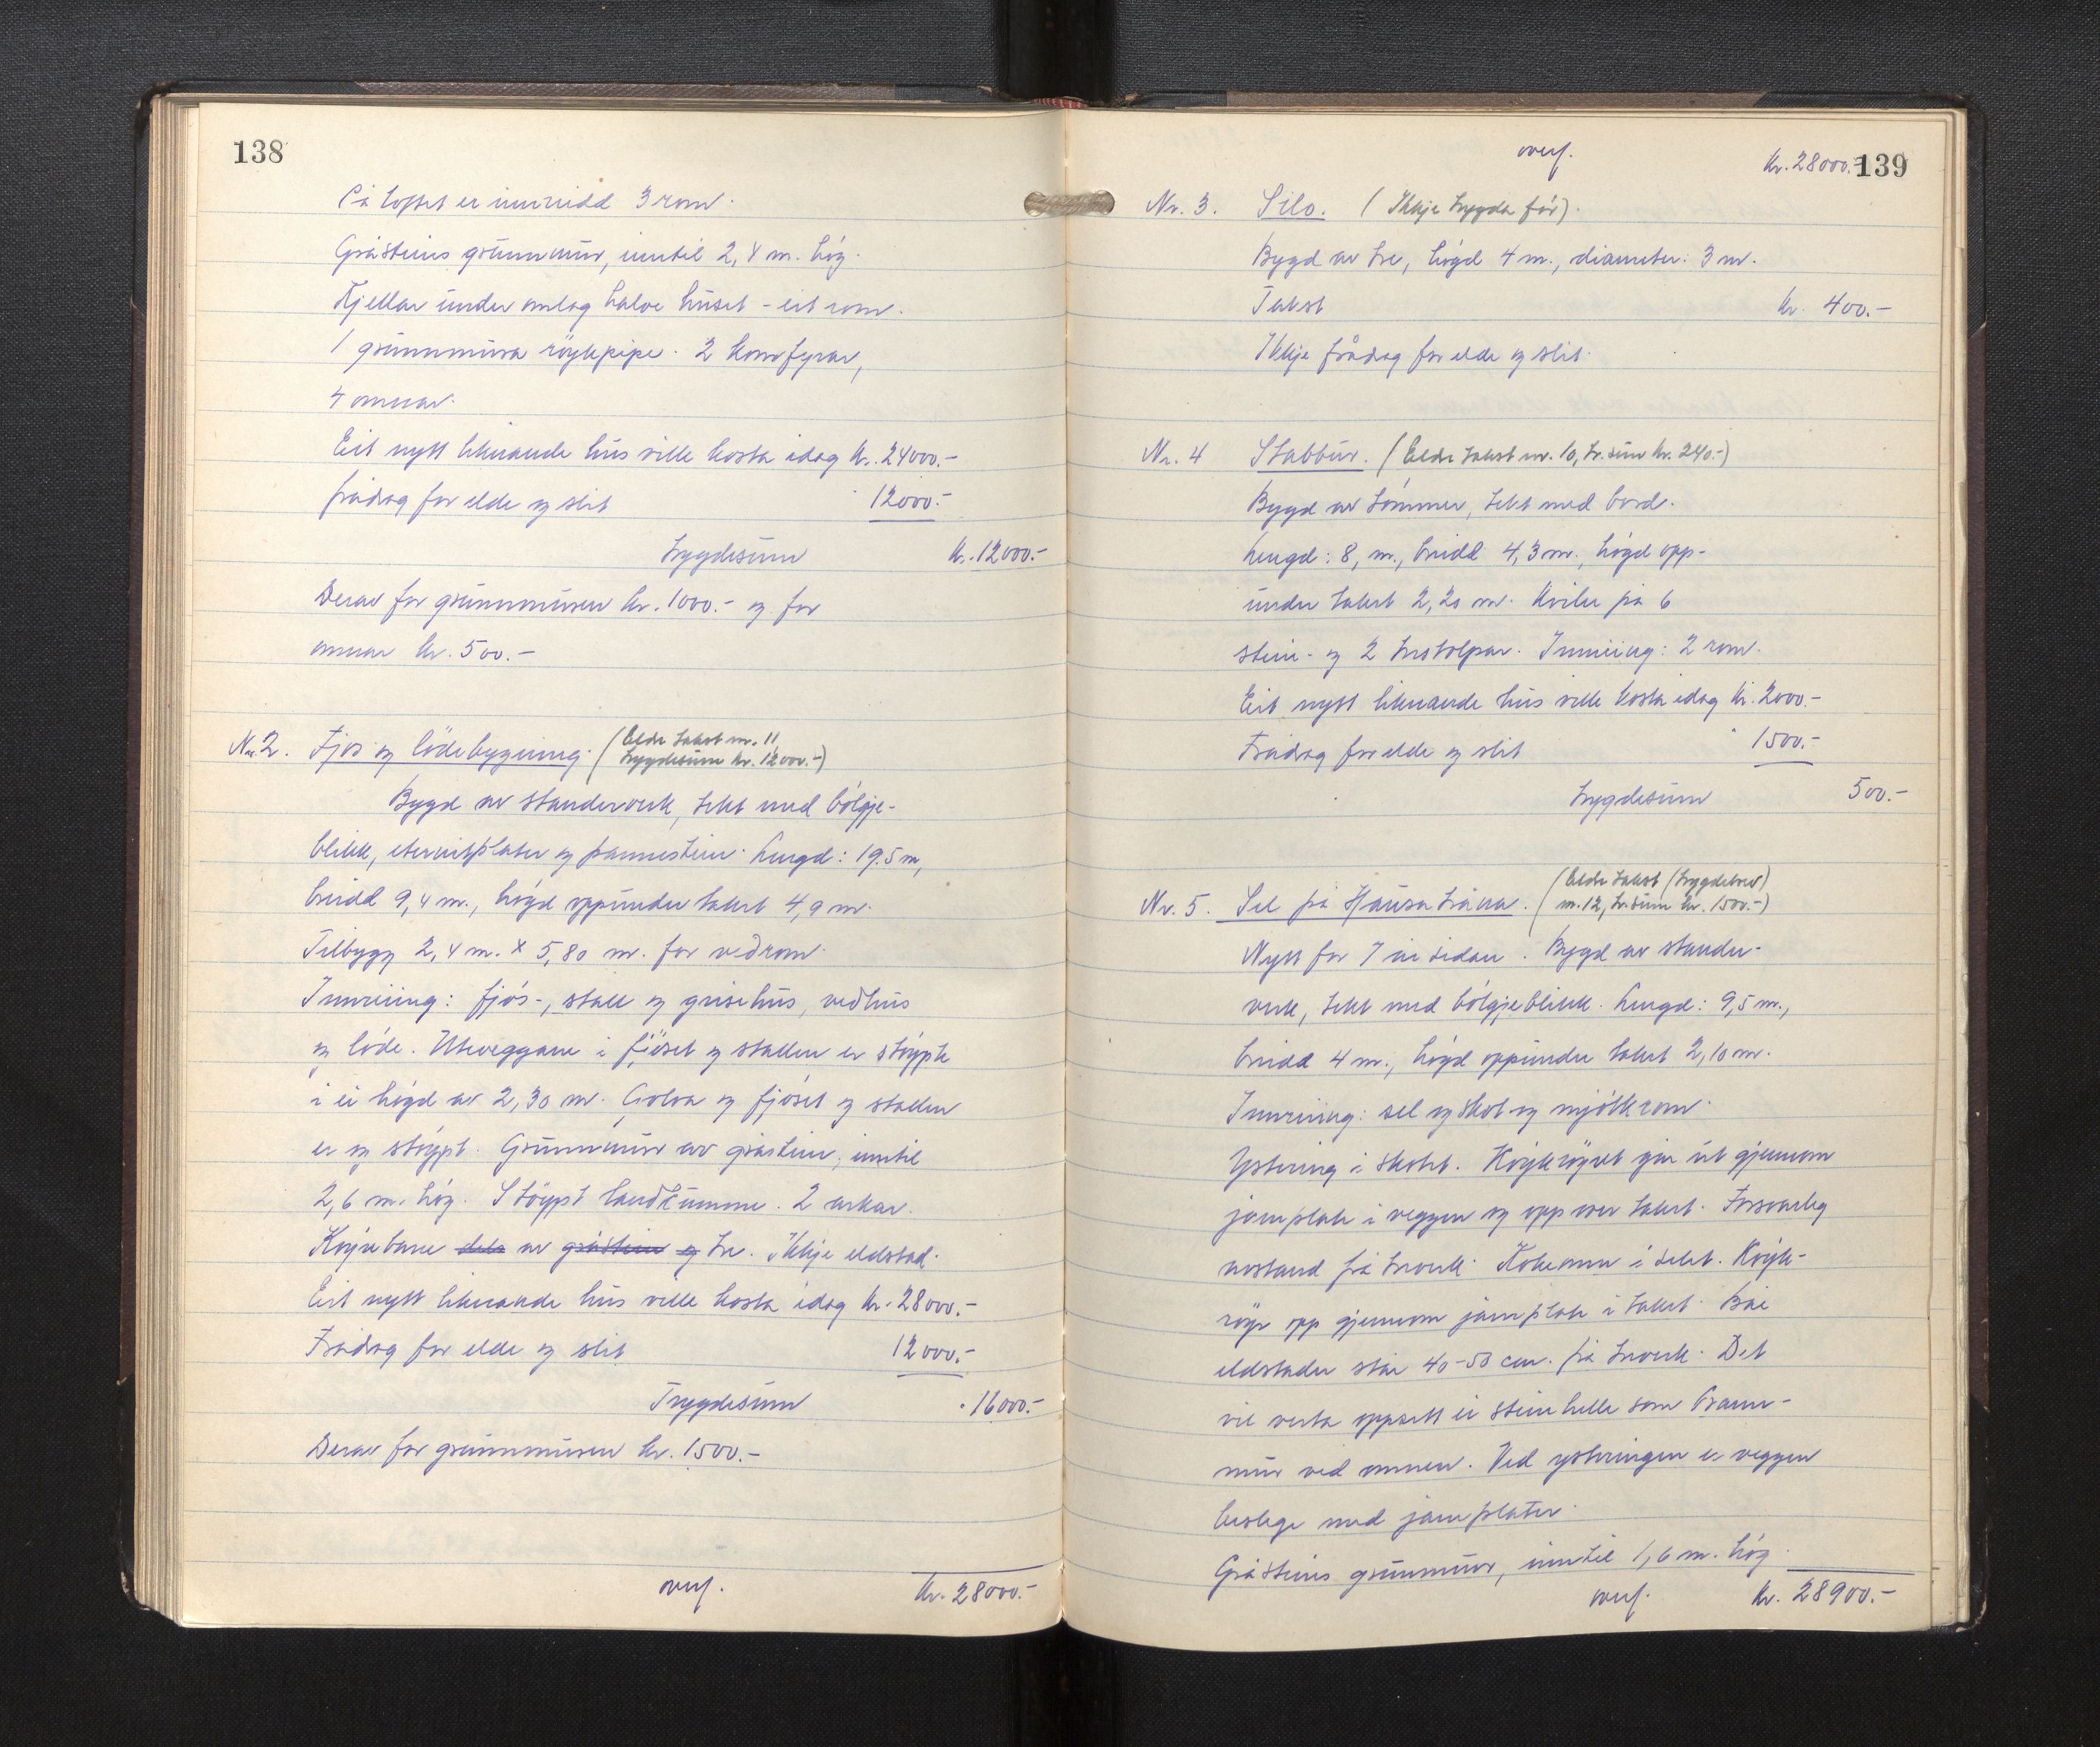 138
På loftet er innreidd 3 rom.
Gråsteins grunnmur, inntil 2,4 m. høg.
Kjellar under omlag halve huset - eit rom.
1 grunnmura røykpipe. 2 komfyrar,
4 omnar.
Eit nytt liknande hus ville kosta idag kr. 24000.-
frådrag for elde og slit 12000.-
trygdesum kr. 12000.-
Derav for grunnmuren kr. 1000.- og for
omnar kr. 500.-
Nr. 2. Fjos og lödebygning. (Eldre takst nr. 11
trygdesum kr. 12000.-)
Bygd av standerverk, tekt med bölgje-
blikk, eternitplater og pannestein. Lengd: 19.5 m,
breidd 9,4 m., högd oppunder taket 4,9 m.
Tilbygg 2,4 m. x 5,80 m. for vedrom.
Innreiing: fjós-, stall og grisehus, vedhus
og löde. Uteveggane i fjöset og stallen er stöypte
i ei högd av 2,30 m. Golva og fjöset og stallen
er og stöypt. Grunnmur av gråstein, inntil
2,6 m. høg. Stöypt landkumme. 2 arkar.
Köyrebane dels av gråstein og tre. Ikkje eldstad.
Eit nytt liknande hus ville kosta idag kr. 28000.-
Frådrag for elde og slit 12000.-
Trygdesum 16000.-
Derav for grunnmuren kr. 1500.-
overf. kr. 28000.-
overf. kr. 28000.- 139
Nr. 3. Silo. (Ikkje trygda för).
Bygd av tre, högd 4 m., diameter: 3 m.
Takst kr. 400.-
Ikkje frådrag for elde og slit.
Nr. 4 Stabbur. (Eldre takst nr. 10, tr. sum kr. 240.-)
Bygd av tömmer, tekt med bord.
Lengd: 8, m., breidd 4,3 m., högd opp-
under taket 2,20 m. Kviler på 6
stein- og 2 trestolpar. Innreiing: 2 rom.
Eit nytt liknande hus ville kosta idag kr. 2000.-
Frådrag for elde og slit 1500.-
trygdesum 500.-
Nr. 5. Sel på . (Eldre takst (trygdebrev)
nr. 12, tr. sum kr. 1500.-)
Nytt for 7 år sidan. Bygd av stander-
verk, tekt med bölgjeblikk. Lengd: 9,5 m.,
breidd 4 m., högd oppunder taket 2,10 m.
Innreiing: sel og skot og mjölkrom.
Ystering i skotet. Röykröyret går ut gjennom
jarnplate i veggen og opp over taket. Forsvarleg
avstand frå treverk. Kokeomn i selet. Röyk-
röyr opp gjennom jarnplate i taket. Båe
eldstader står 40-50 cm. frå treverk. Det
vil verta oppsett ei steinhelle som brann-
mur ved omnen. Ved ysteringen er veggen
beslege med jarnplater.
Gråsteins grunnmur, inntil 1,6 m. høg.
overf. kr. 28900.-